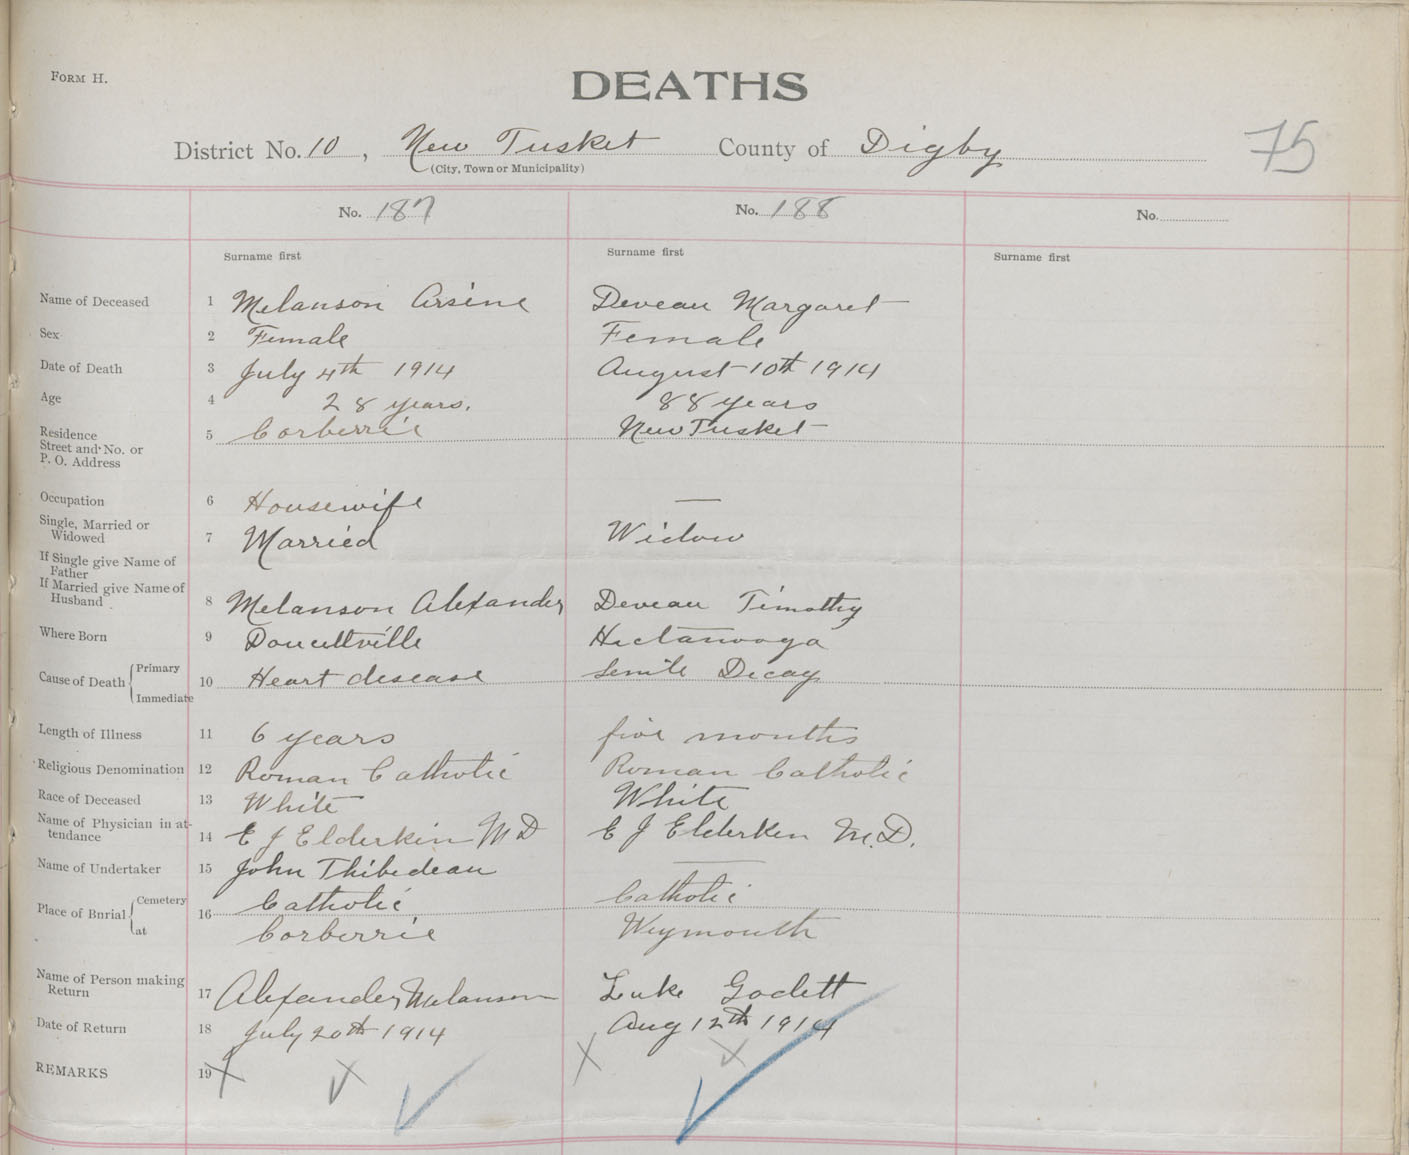 FORM H.
DEATHS
75
District No. 10, New Tusket County of Digby
(City, Town or Municipality)
No. 187 No. 188 No.
Surname first Surname first Surname first
Name of Deceased 1 Melanson Arsine Deveau Margaret
Sex 2 Female Female
Date of Death 3 July 4th 1914 August 10th 1914
Age 4 28 years. 88 years
Residence 5 Corberrie New Tusket
Street and No. or
P. O. Address
Occupation 6 Housewife —
Single, Married or
Widowed 7 Married Widow
If Single give Name of
Father
If Married give Name of
Husband 8 Melanson Alexander Deveau Timothy
Where Born 9 Doucettville Hectanooga
Cause of Death { Primary
Immediate 10 Heart disease Senile Decay
Length of Illness 11 6 years five months
Religious Denomination 12 Roman Catholic Roman Catholic
Race of Deceased 13 White White
Name of Physician in at-
tendance 14 E J Elderkin MD E J Elderken M.D.
Name of Undertaker 15 John Thibedeau —
Place of Burial { Cemetery 16 Catholic Catholic
at Corberrie Weymouth
Name of Person making
Return 17 Alexander Melanson Luke Godett
Date of Return 18 July 20th 1914 Aug 12th 1914
REMARKS 19